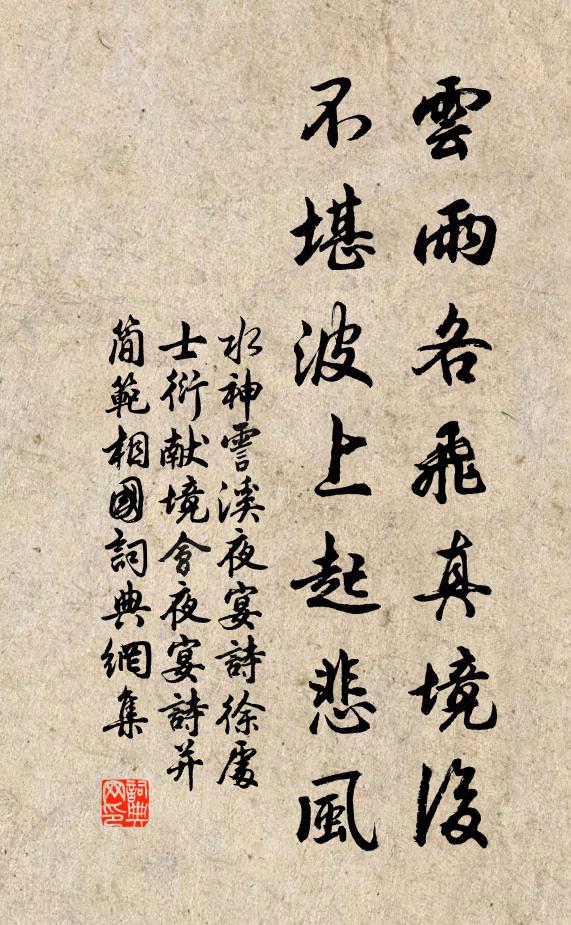 雲雨各飛真境後
不堪波上起悲風
水神霅溪夜宴詩徐處
士衍献境會夜宴詩并
簡範相國詞典網集
詞典网印